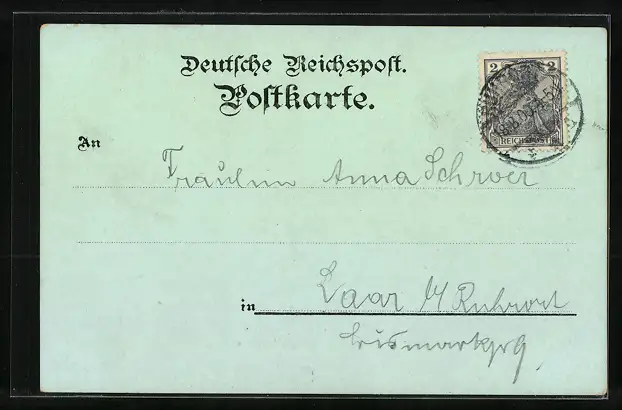 Deutsche Reichspost.
Postkarte.
2 2
REICHSPOST
An
Fräulein Anna Schroer
in Laar b/ Ruhrort